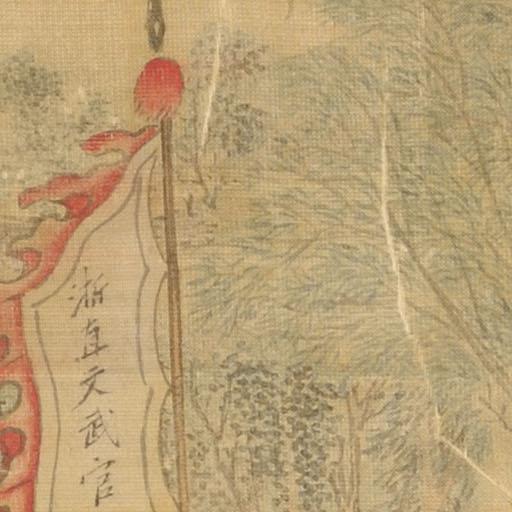 浙直文武官